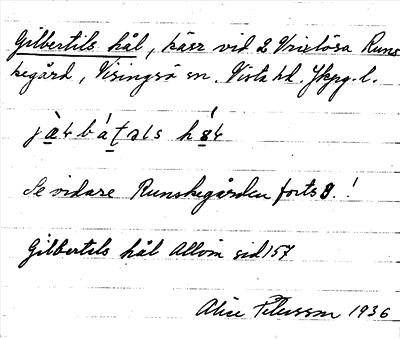 Gilbertils hål, kärr vid 2 Vrixlösa Runs
kegård, Visingsö sn. Vista hd. Jkpg. l.
Se vidare Runskegården forts 8.!
Gilbertils hål Allvin sid 157
Alice Petersson 1936